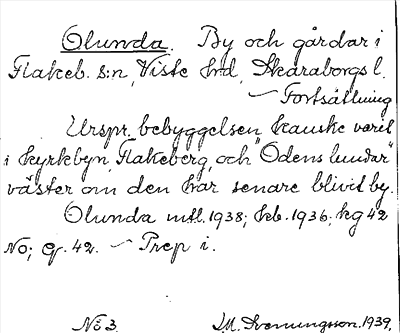 Olunda. By och gårdar i
Flakeb. s:n, Viste hrd, Skaraborgs l.
— Fortsättning
Urspr. bebyggelsen kanske varit
i kyrkbyn, Flakeberg, och "Odens lundar"
väster om den har senare blivit by.
Olunda mtl. 1938; kb. 1936; kg 42
No; G. 42. — Prep i.
No 3. J.M. Svenungsson. 1939.